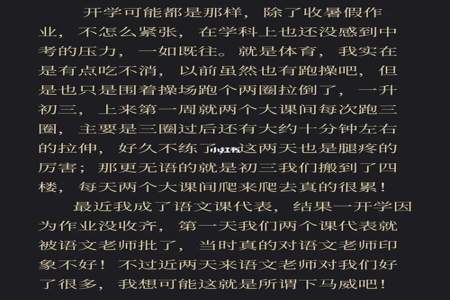 开学可能都是那样，除了收暑假作
业，不怎么紧张，在学科上也还没感到中
考的压力，一如既往。就是体育，我实在
是有点吃不消，以前虽然也有跑操吧，但
是也只是围着操场跑个两圈拉倒了，一升
初三，上来第一周就两个大课间每次跑三
圈，主要是三圈过后还有大约十分钟左右
的拉伸，好久不练了 这两天也是腿疼的
厉害；那更无语的就是初三我们搬到了四
楼，每天两个大课间爬来爬去真的很累！
最近我成了语文课代表，结果一开学因
为作业没收齐，第一天我们两个课代表就
被语文老师批了，当时真的对语文老师印
象不好！不过近两天来语文老师对我们好
了很多，我想可能这就是所谓下马威吧！
小红书